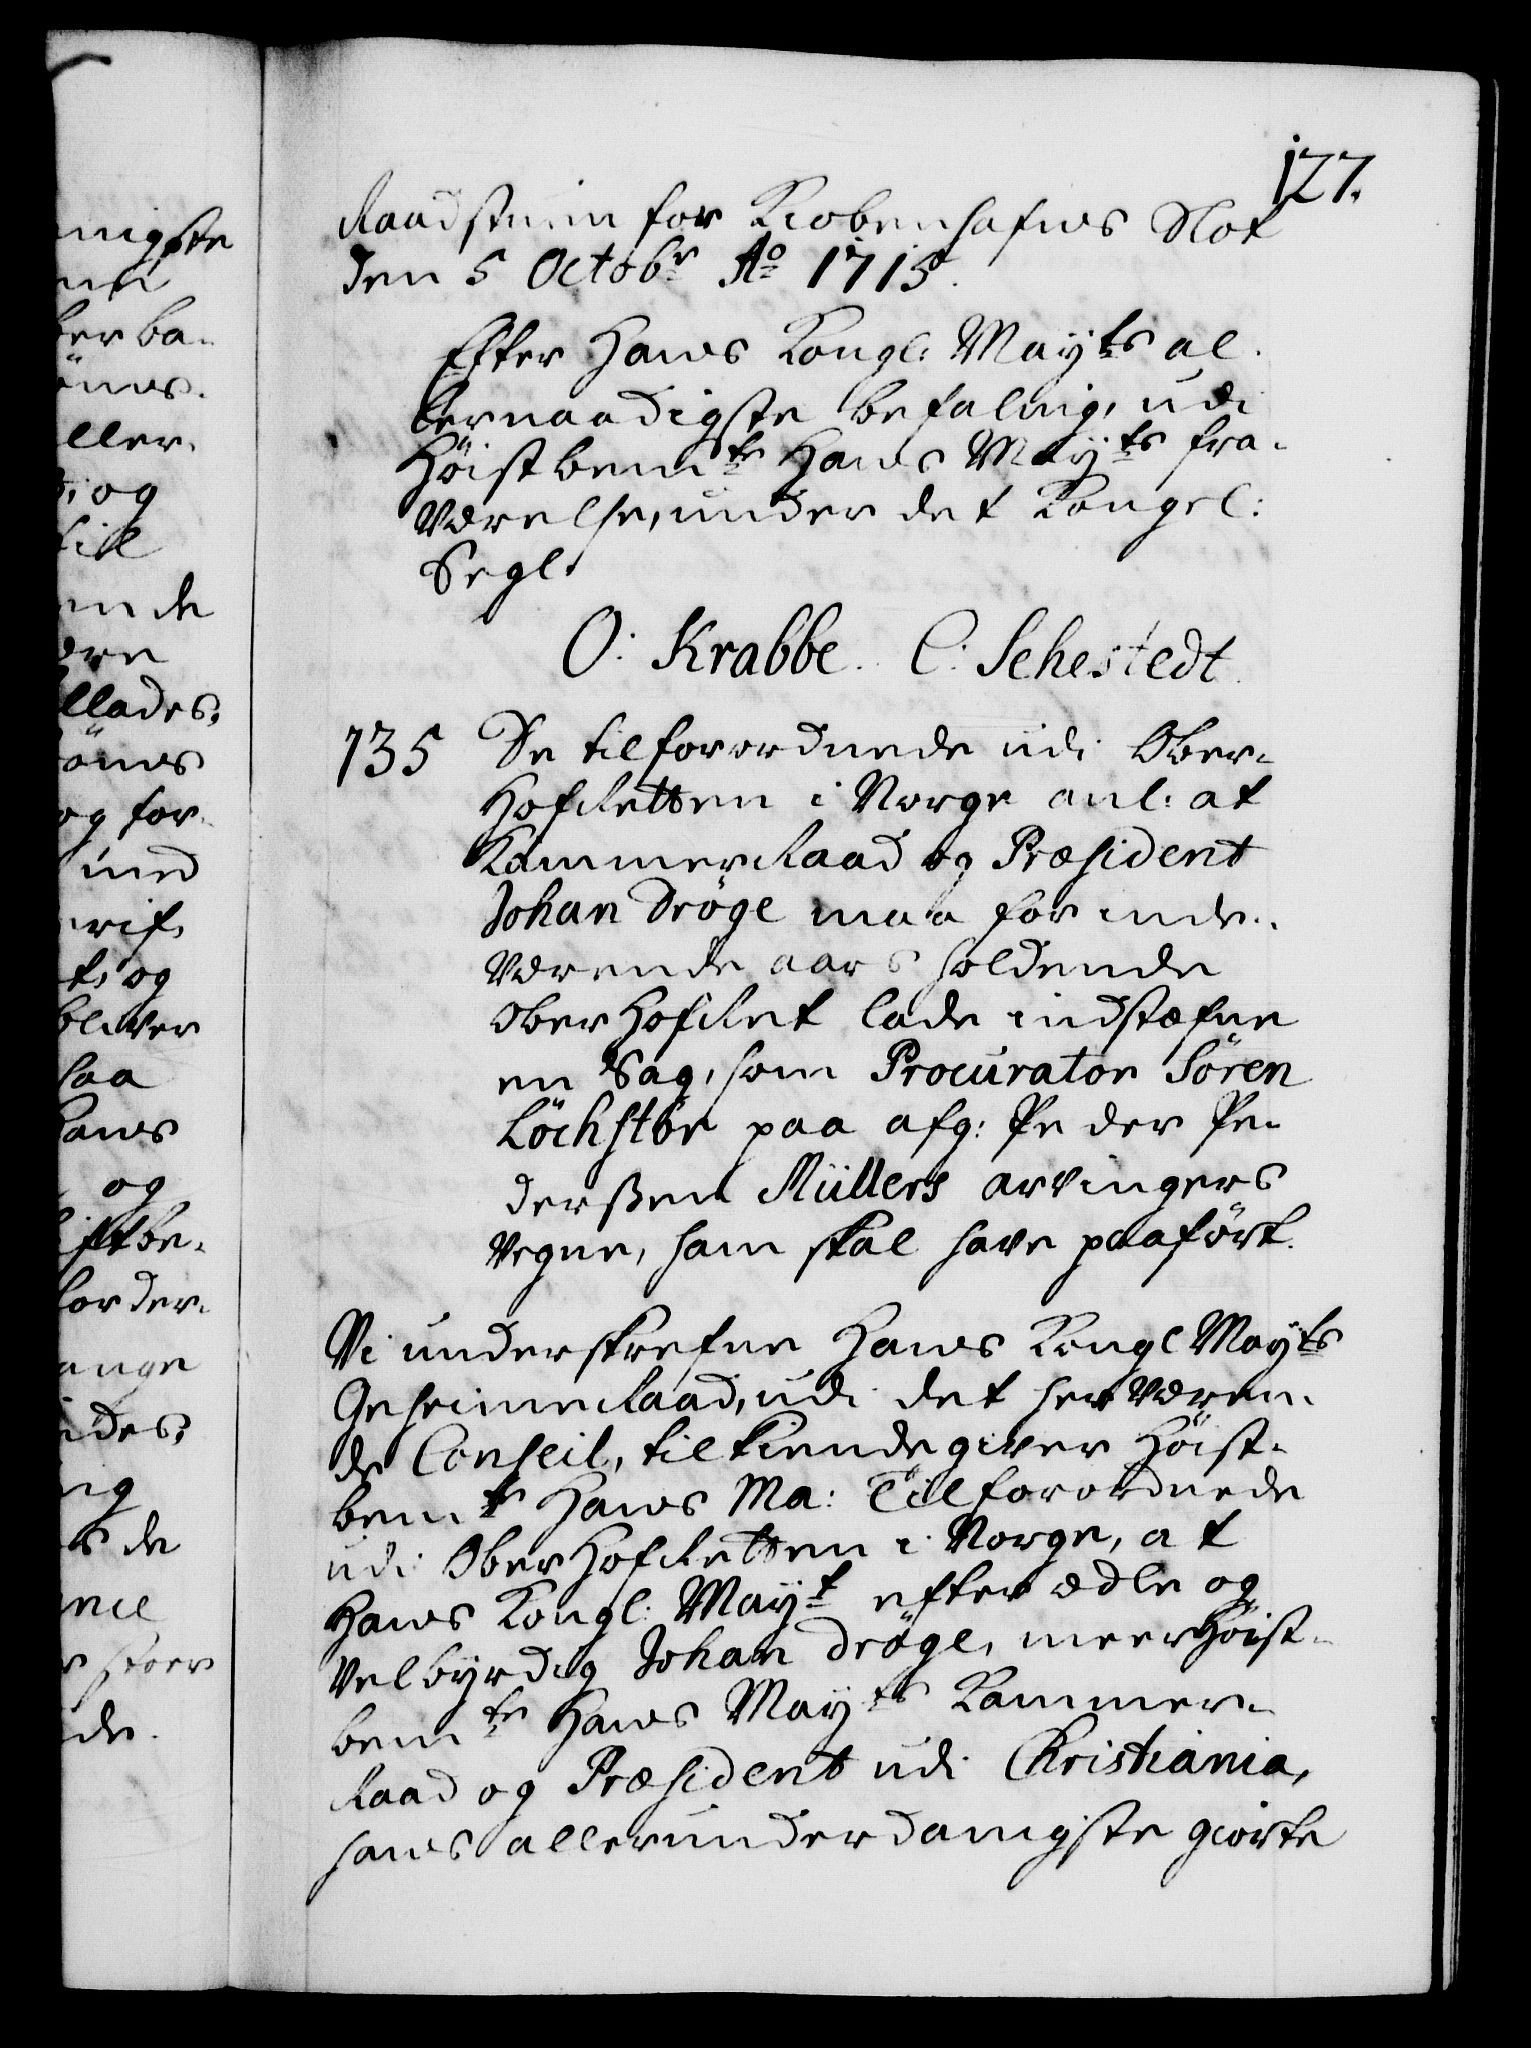 177.
Raadstuen for Kiobenhafns Slot
den 5 Octobr Ao 1715.
Efter Hans Kongl: Mayts al-
lernaadigste befalning, udi
Höistbemte Hans Mayts fra-
værelse, under det Kongel:
Segl.
O: Krabbe. C: Sehestedt.
735 De tilforordnede udi Ober-
HofRetten i Norge anl: at
KammerRaad og Præsident
Johan Dröge maa for inde-
værende aars holdende
OberHofRet lade indstæfne
en Sag, som Procurator Sören
Löchstör paa afg: Peder Pe-
derßen Müllers arvingers
vegne, ham skal have paafört.
Vi underskrefne Hans Kongl Mayts
GeheimeRaad, udi det herværen-
de Conseil, tilkiendegiver Höist-
bemte Hans Ma: Tilforordnede
udi OberHofRetten i Norge, at
Hans Kongl: Mayt efter ædle og
velbyrdig Johan Dröge, meerhöist-
bemte Hans Mayts Kammer-
Raad og Præsident udi Christiania,
hans allerunderdanigste giorte
nigste
ber ba-
ller-
og
till
ende
ære
llades,
og for-
med
og
bliver
saa
Hans
og
lorder-
ange
ides,
ig
de
de.